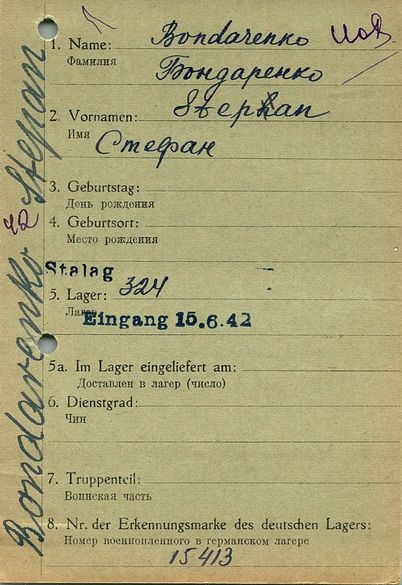 1. Name: Bondarenko
Фамилия Бондаренко
2. Vornamen: Stephan
Имя Стефан
3. Geburtstag:
День рождения
4. Geburtsort:
Место рождения
Stalag
5. Lager: 324
Eingang 15.6.42
5a. Im Lager eingeliefert am:
Доставлен в лагер (число)
6. Dienstgrad:
Чин
7. Truppenteil:
Воинская часть
8. Nr. der Erkennungsmarke des deutschen Lagers:
Номер военнопленного в германском лагере
15413
Bondarenko Stepan